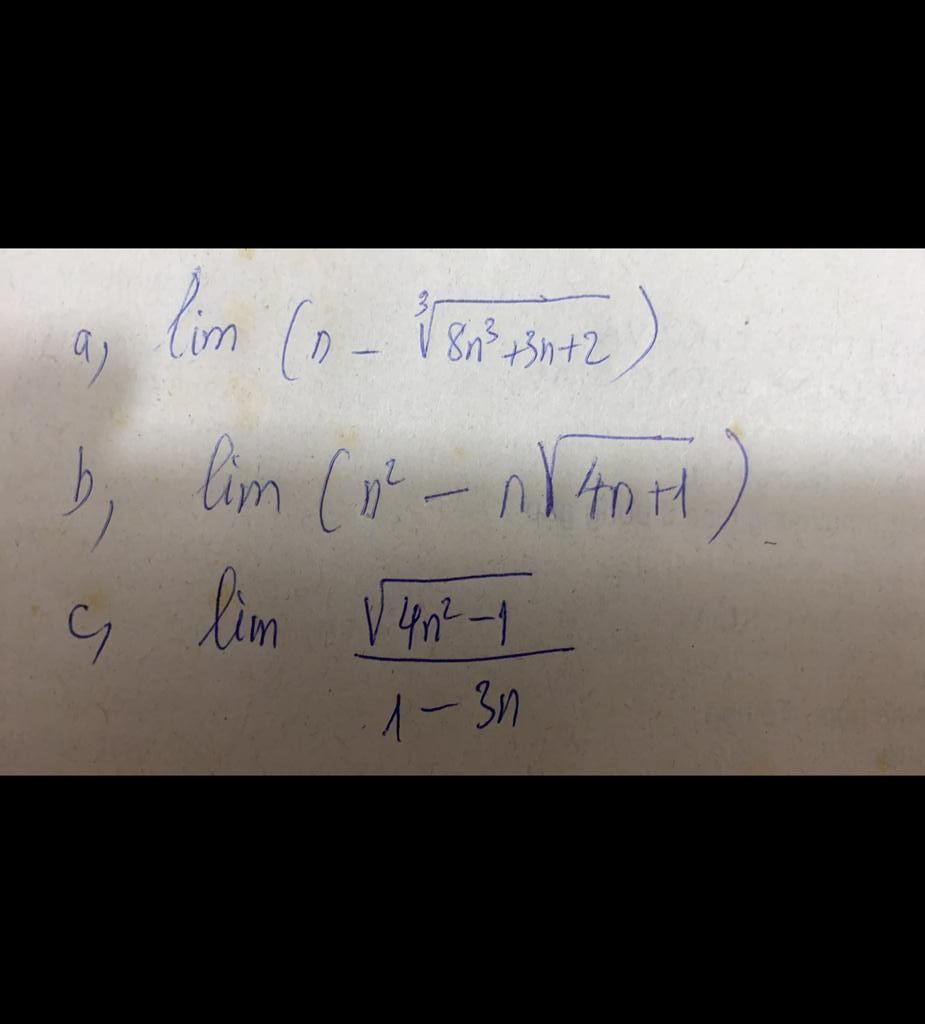 a, lim (n - ∛(8n³+3n+2))
b, lim (n² - n√(4n+1))
c, lim √(4n²-1) / (1-3n)